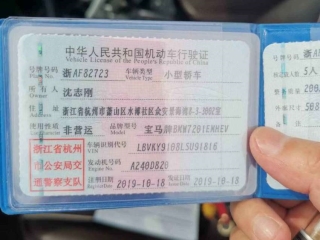 中华人民共和国机动车行驶证
Vehicle License of the People's Republic of China
号牌号码 浙AF82723 车辆类型 小型轿车
Plate No. Vehicle Type
所有人 沈志刚
Owner
住址 浙江省杭州市萧山区水博社区众安景海湾8-3-3002室
Address
使用性质 非营运 品牌型号 宝马牌BMW7201EMHEV
浙江省杭州
市公安局交
通警察支队
车辆识别代号 LBVKY9108LSU91816
VIN
发动机号码 A240D820
Engine No.
注册日期 2019-10-18 发证日期 2019-10-18
号牌号码 浙AF
5人